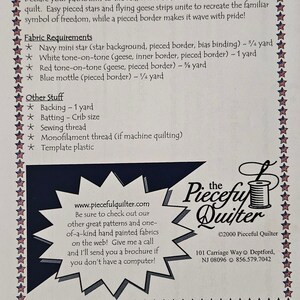 quilt. Easy pieced stars and flying geese strips unite to recreate the familiar
symbol of freedom, while a pieced border makes it wave with pride!
Fabric Requirements
* Navy mini star (star background, pieced border, bias binding) – ¾ yard
* White tone-on-tone (geese, inner border, pieced border) – 1 yard
* Red tone-on-tone (geese, pieced border) – ⅝ yard
* Blue mottle (pieced border) – ¼ yard
Other Stuff
* Backing – 1 yard
* Batting – Crib size
* Sewing thread
* Monofilament thread (if machine quilting)
* Template plastic
www.piecefulquilter.com
Be sure to check out our
other great patterns and one-
of-a-kind hand painted fabrics
on the web! Give me a call
and I'll send you a brochure if
you don't have a computer!
the
Pieceful
Quilter
©2000 Pieceful Quilter
101 Carriage Way Deptford,
NJ 08096 856.579.7042